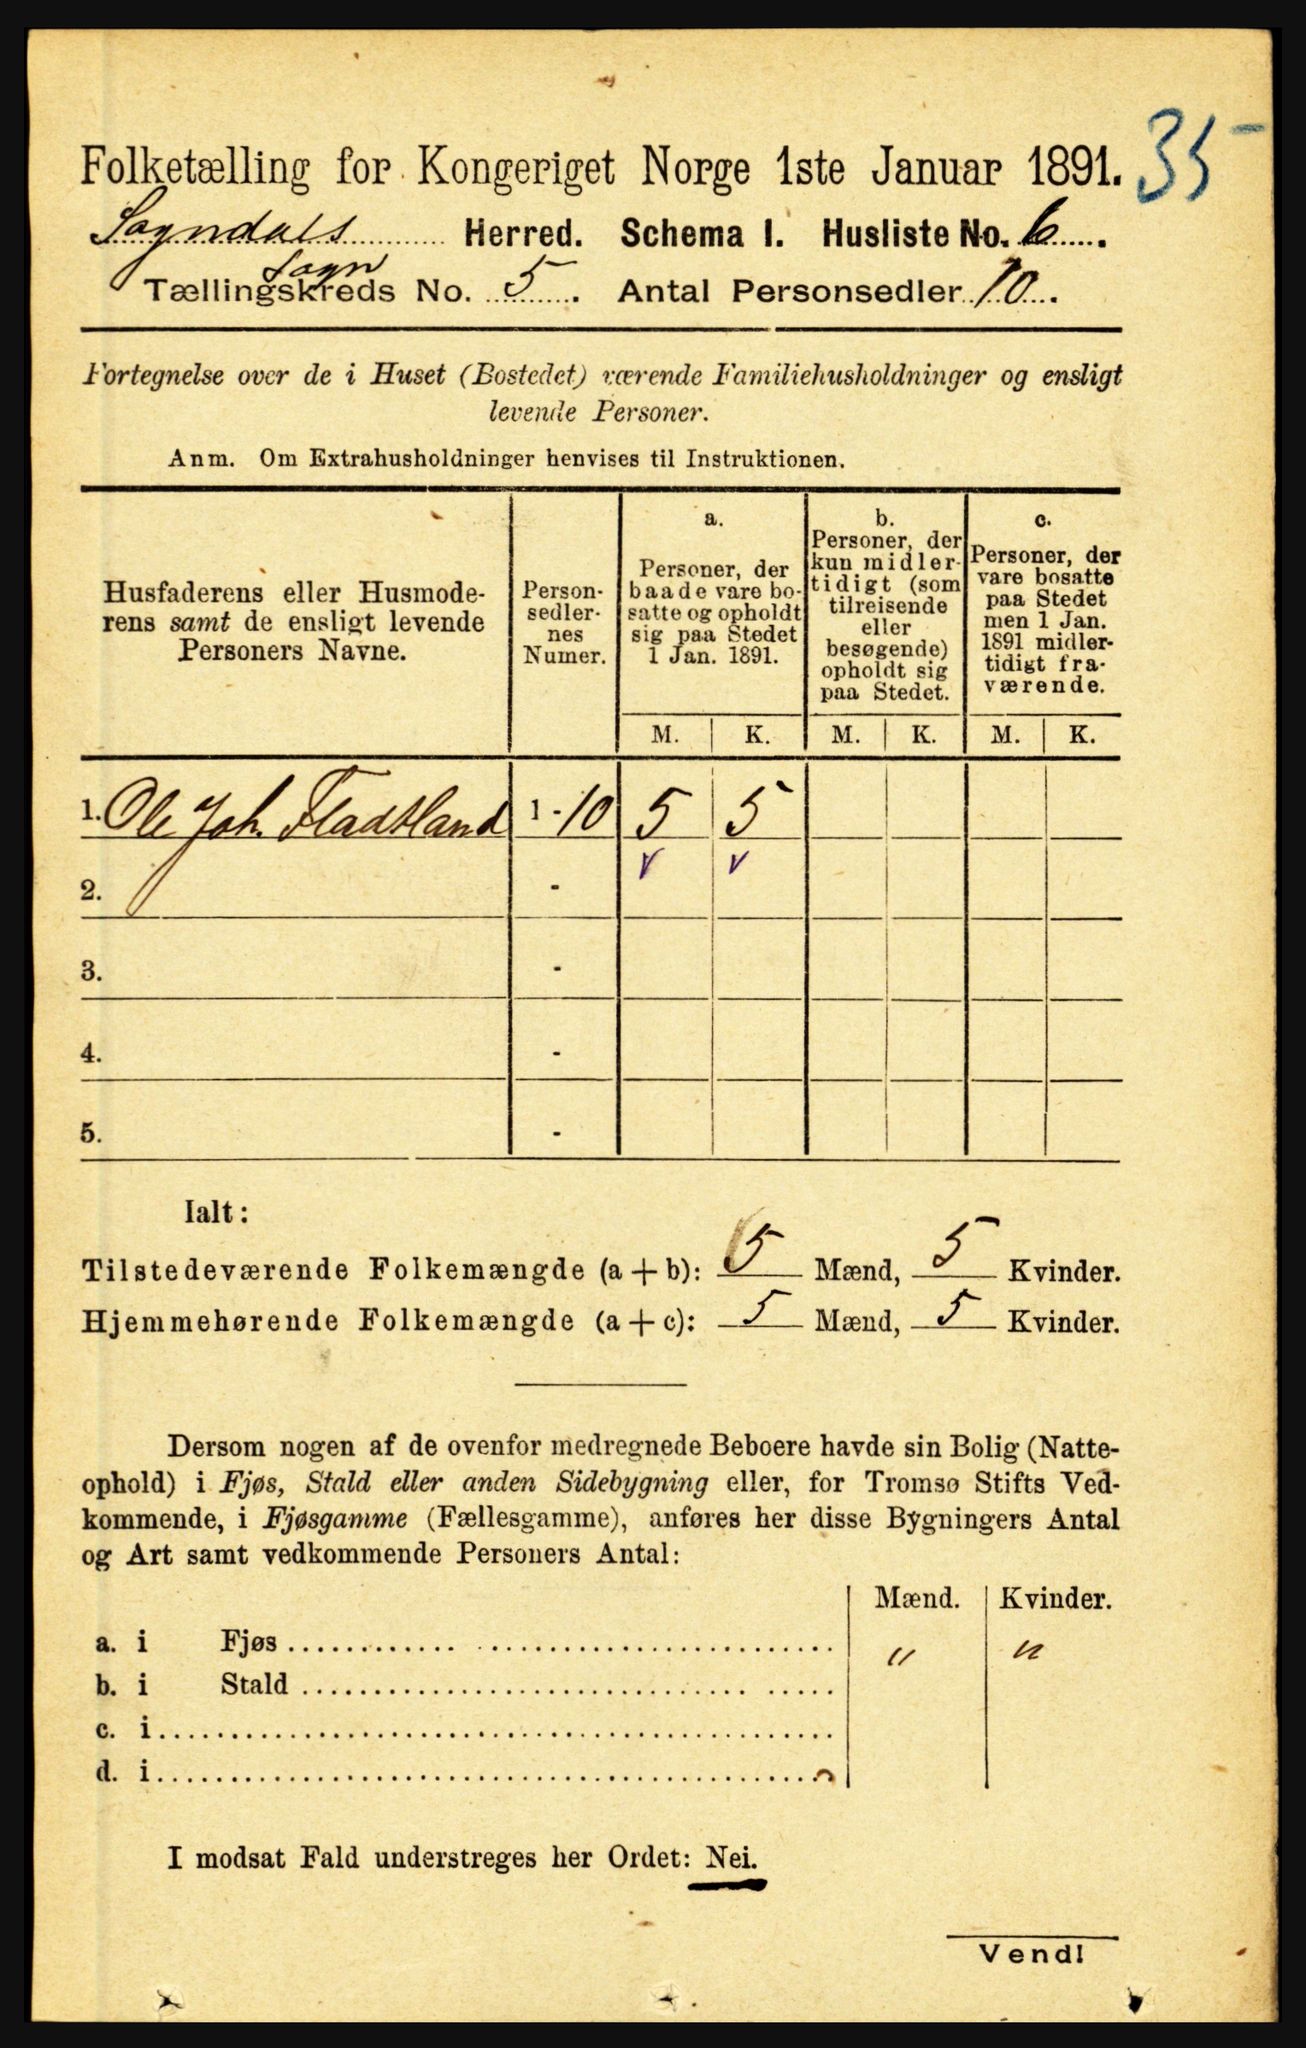 35
Folketælling for Kongeriget Norge 1ste Januar 1891.
Sogndals Herred. Schema I. Husliste No. 6.
Sogn
Tællingskreds No. 5. Antal Personsedler 10.
Fortegnelse over de i Huset (Bostedet) værende Familiehusholdninger og ensligt
levende Personer.
Anm. Om Extrahusholdninger henvises til Instruktionen.
Husfaderens eller Husmode-
rens samt de ensligt levende
Personers Navne.
Person-
sedler-
nes
Numer.
a.
Personer, der
baade vare bo-
satte og opholdt
sig paa Stedet
1 Jan. 1891.
b.
Personer, der
kun midler-
tidigt (som
tilreisende
eller
besøgende)
opholdt sig
paa Stedet.
c.
Personer, der
vare bosatte
paa Stedet
men 1 Jan.
1891 midler-
tidigt fra-
værende.
M. K. M. K. M. K.
1. Ole Joh. Fladtland 1-10 5 5
2. -
3. -
4. -
5. -
Ialt:
Tilstedeværende Folkemængde (a + b): 5 Mænd, 5 Kvinder.
Hjemmehørende Folkemængde (a + c): 5 Mænd, 5 Kvinder.
Dersom nogen af de ovenfor medregnede Beboere havde sin Bolig (Natte-
ophold) i Fjøs, Stald eller anden Sidebygning eller, for Tromsø Stifts Ved-
kommende, i Fjøsgamme (Fællesgamme), anføres her disse Bygningers Antal
og Art samt vedkommende Personers Antal:
Mænd. Kvinder.
a. i Fjøs " "
b. i Stald
c. i
d. i
I modsat Fald understreges her Ordet: Nei.
Vend!